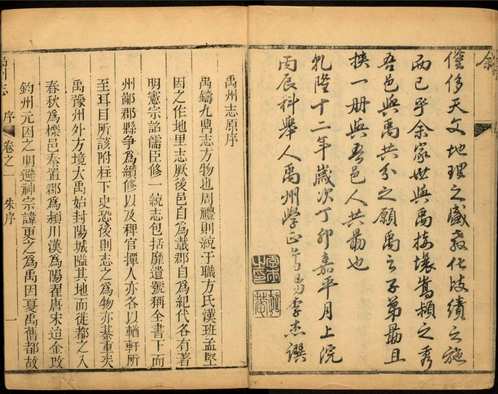 僅侈天文地理之盛教化政績之施
而已乎余家世與禹接壤嵩潁之秀
吾邑與禹共分之願禹之子弟勗且
挾一冊與吾邑人共勗也
乾隆十二年歲次丁卯嘉平月上浣
丙辰科舉人禹州學正古嵩李杰譔
禹州志原序
禹鑄九鼎志方物也周禮則統于職方氏漢班孟堅
因之作地里志厥後邑自為載郡自為紀代各有著
明憲宗詔儒臣修一統志包括靡遺號稱全書下而
州鄙郡縣爭為纘修以及稗官撢人亦各以輶軒所
至耳目所該附柱下史恐後則志之為物亦綦重矣
禹豫州外方境大禹始封陽城隘其地而徙都之入
春秋為櫟邑秦置郡為潁川漢為陽翟唐宋迨金改
鈞州元因之明避神宗諱更之為禹因夏禹舊都故
禹州志 序 卷之一 朱序 一